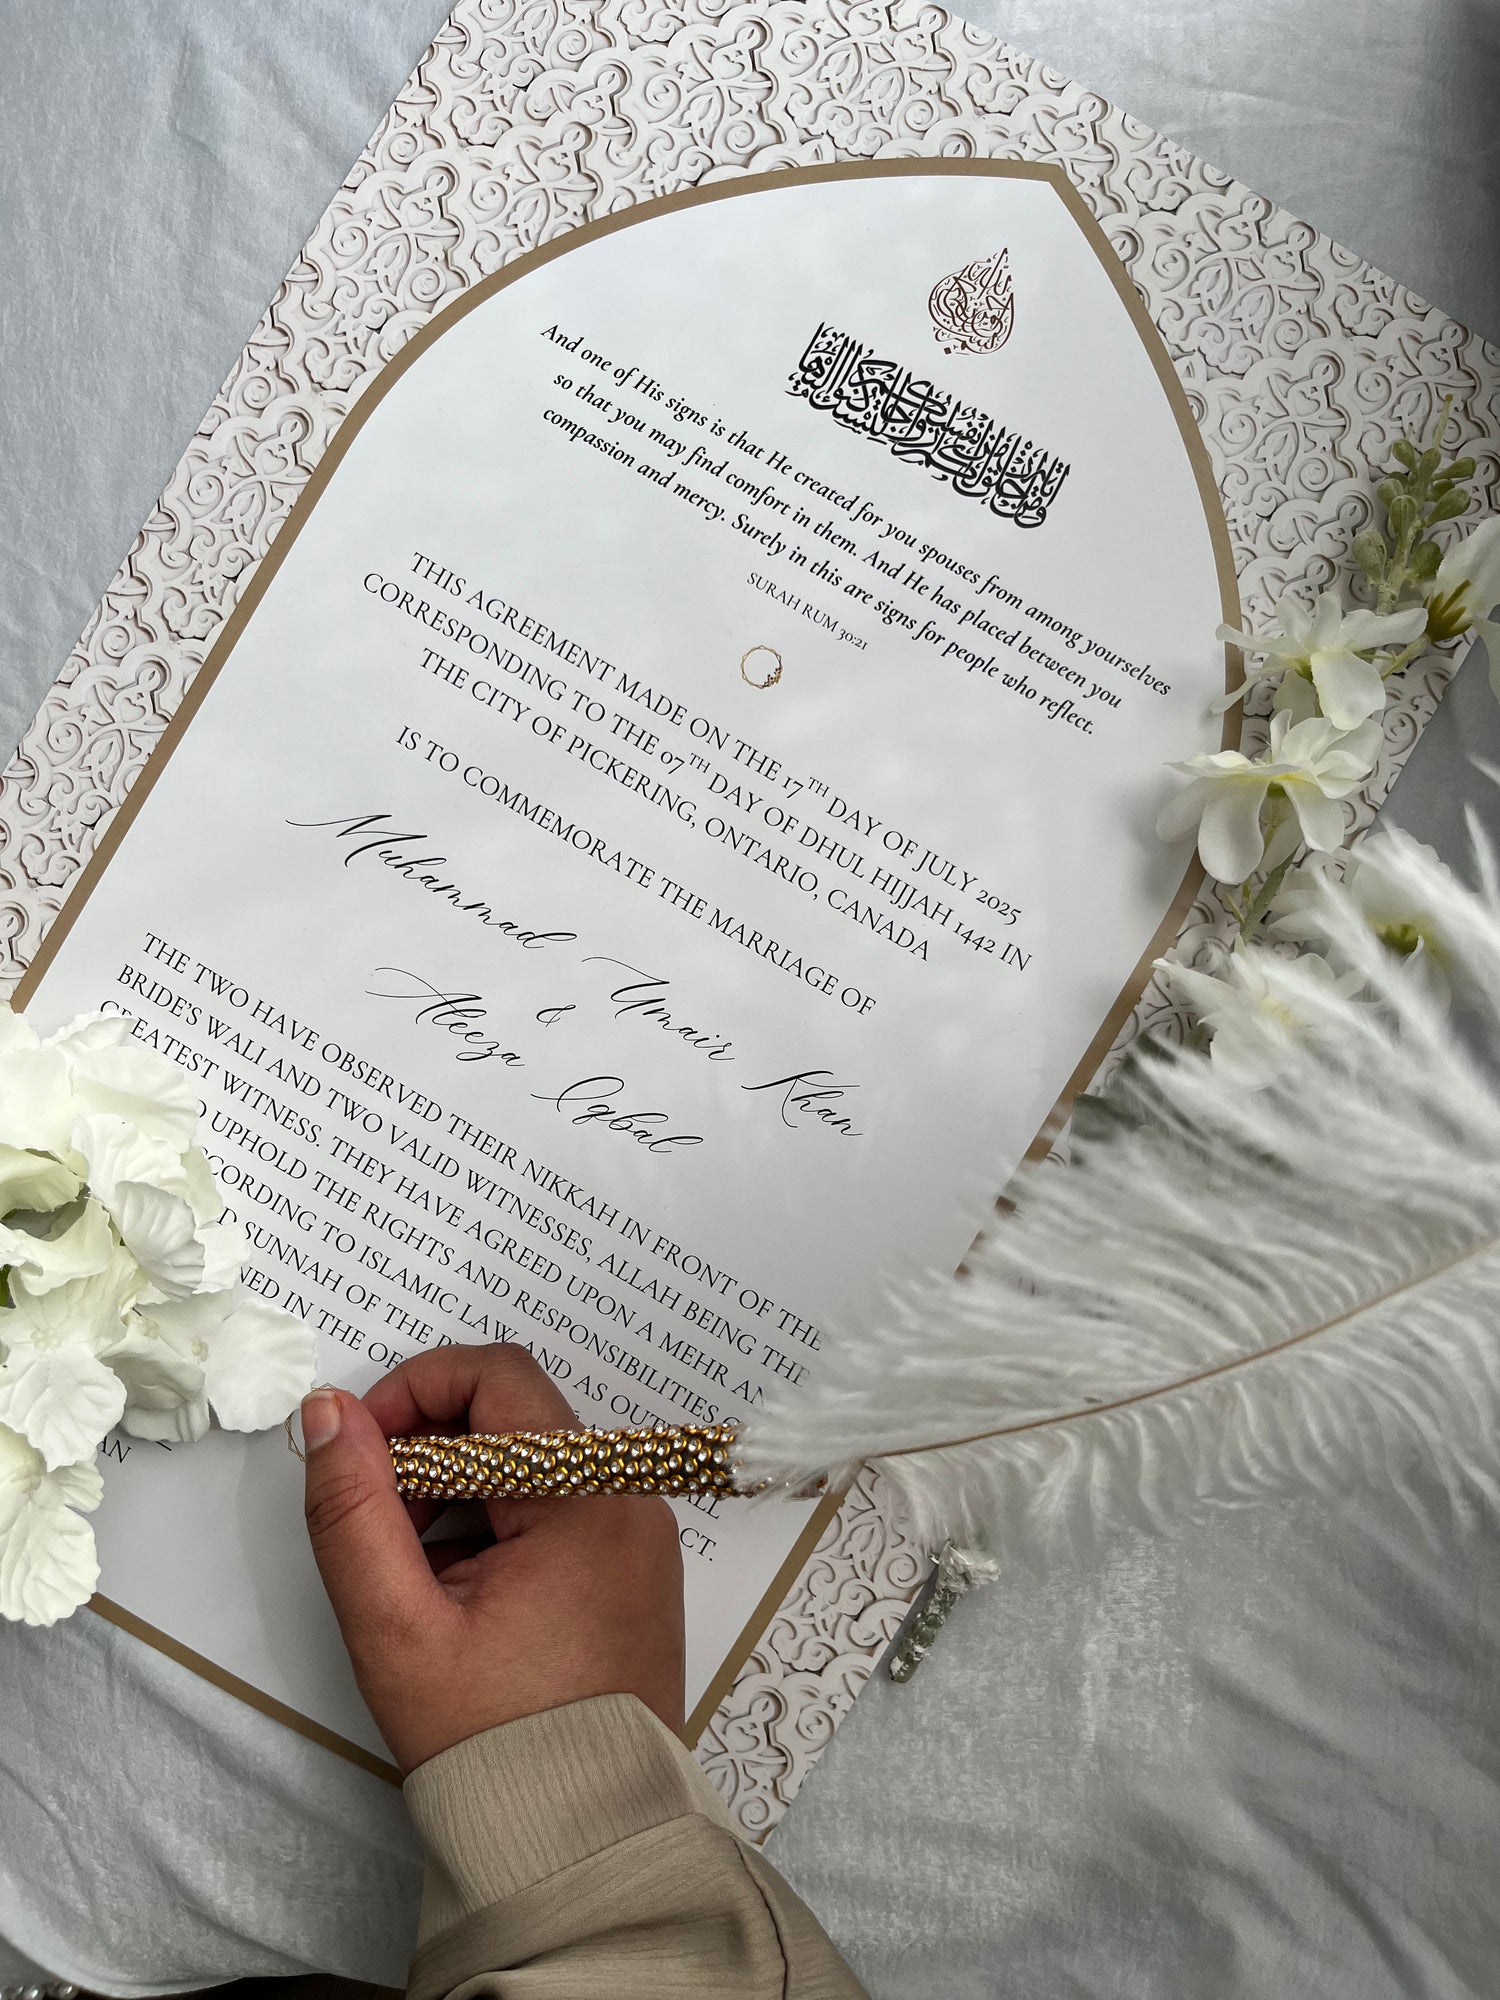 وَمِنْ آيَاتِهِ أَنْ خَلَقَ لَكُم مِّنْ أَنفُسِكُمْ أَزْوَاجًا لِّتَسْكُنُوا إِلَيْهَا
And one of His signs is that He created for you spouses from among yourselves
so that you may find comfort in them. And He has placed between you
compassion and mercy. Surely in this are signs for people who reflect.
SURAH RUM 30:21
THIS AGREEMENT MADE ON THE 17TH DAY OF JULY 2025
CORRESPONDING TO THE 07TH DAY OF DHUL HIJJAH 1442 IN
THE CITY OF PICKERING, ONTARIO, CANADA
IS TO COMMEMORATE THE MARRIAGE OF
Muhammad Umair Khan
&
Aleeza Iqbal
THE TWO HAVE OBSERVED THEIR NIKKAH IN FRONT OF THE
BRIDE'S WALI AND TWO VALID WITNESSES, ALLAH BEING THE
GREATEST WITNESS. THEY HAVE AGREED UPON A MEHR
UPHOLD THE RIGHTS AND RESPONSIBILITIES
ACCORDING TO ISLAMIC LAW AND AS
SUNNAH OF THE
IN THE